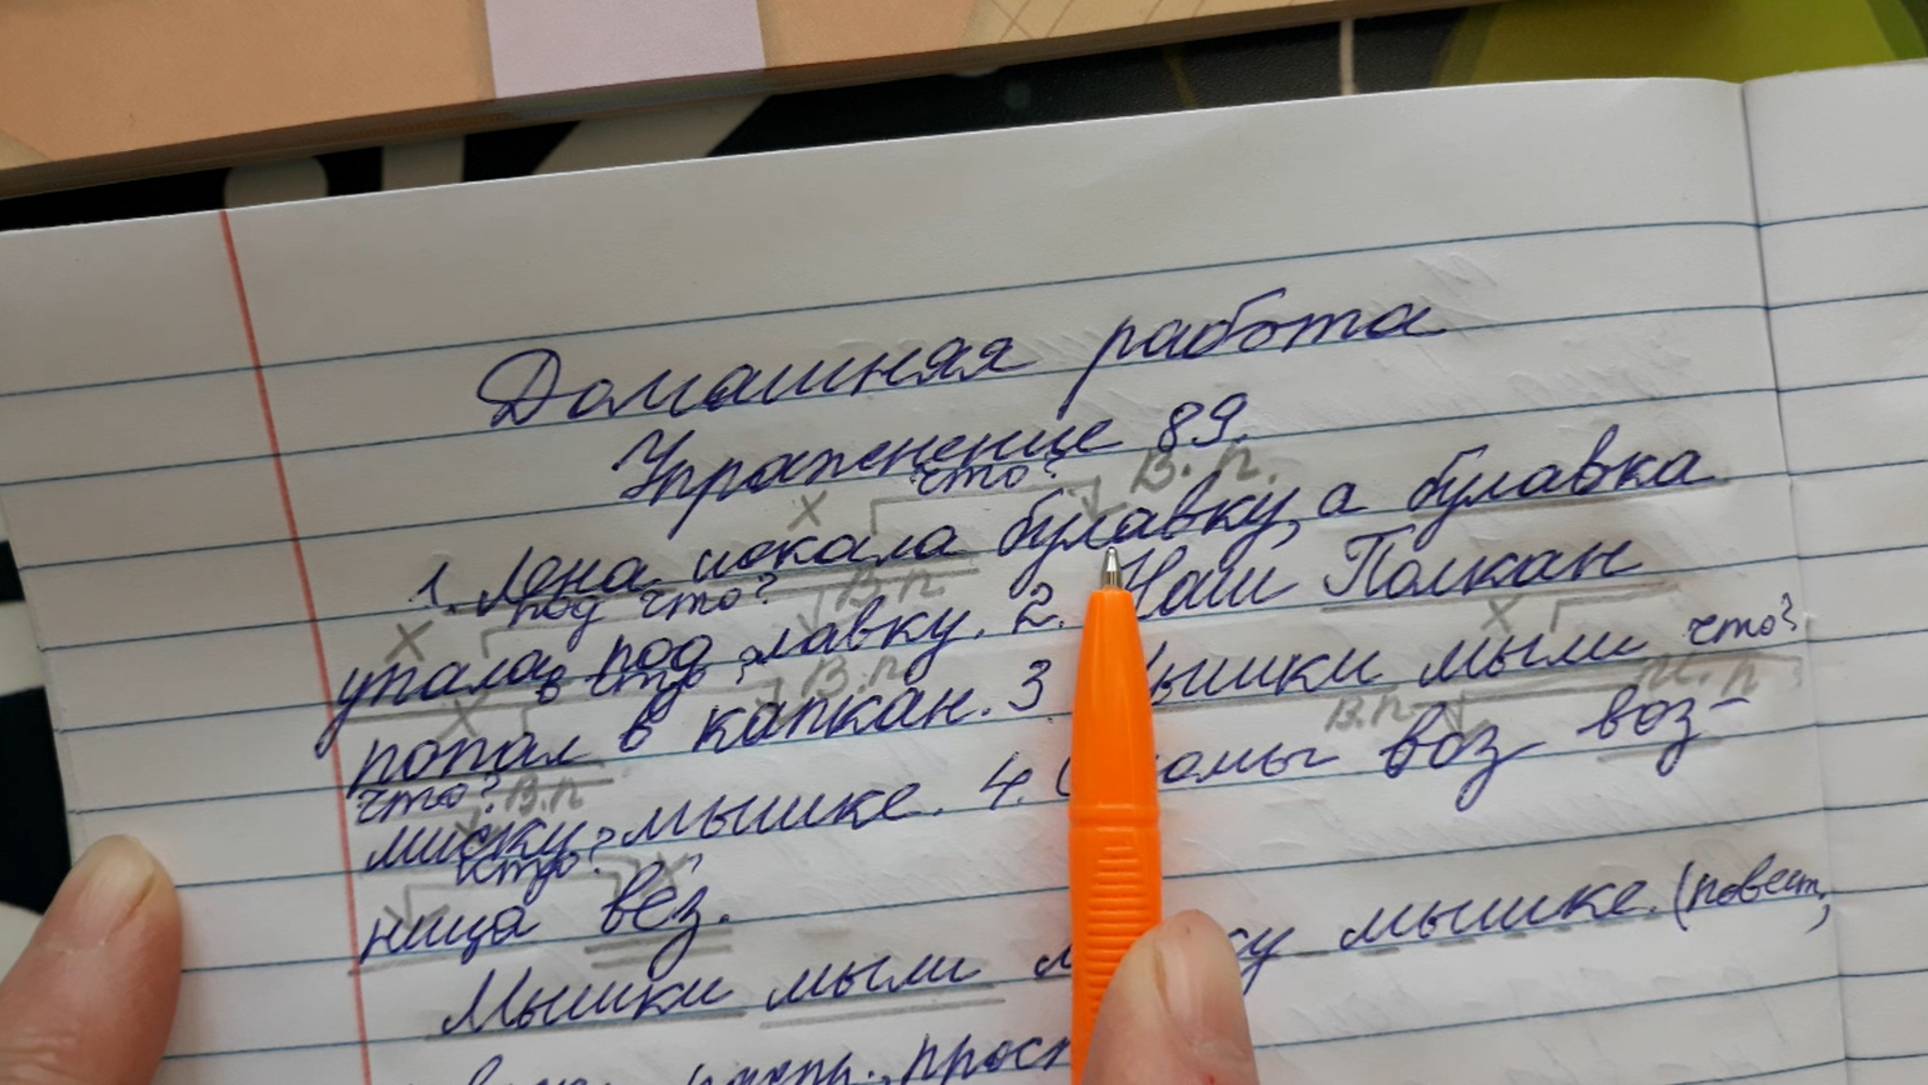 Домашняя работа
Упражнение 89.
что? В.п.
х
1. Лена искала булавку, а булавка
под что? В.п
х
упала под лавку. 2. Наш Полкан
в что? В.п.
х
х
попал в капкан. 3. мыли что?
что? В.п
В.п. И.п
миску мышке. 4. воз воз-
кто? х
ница вёз.
Мышки мыли мышке. (повест,